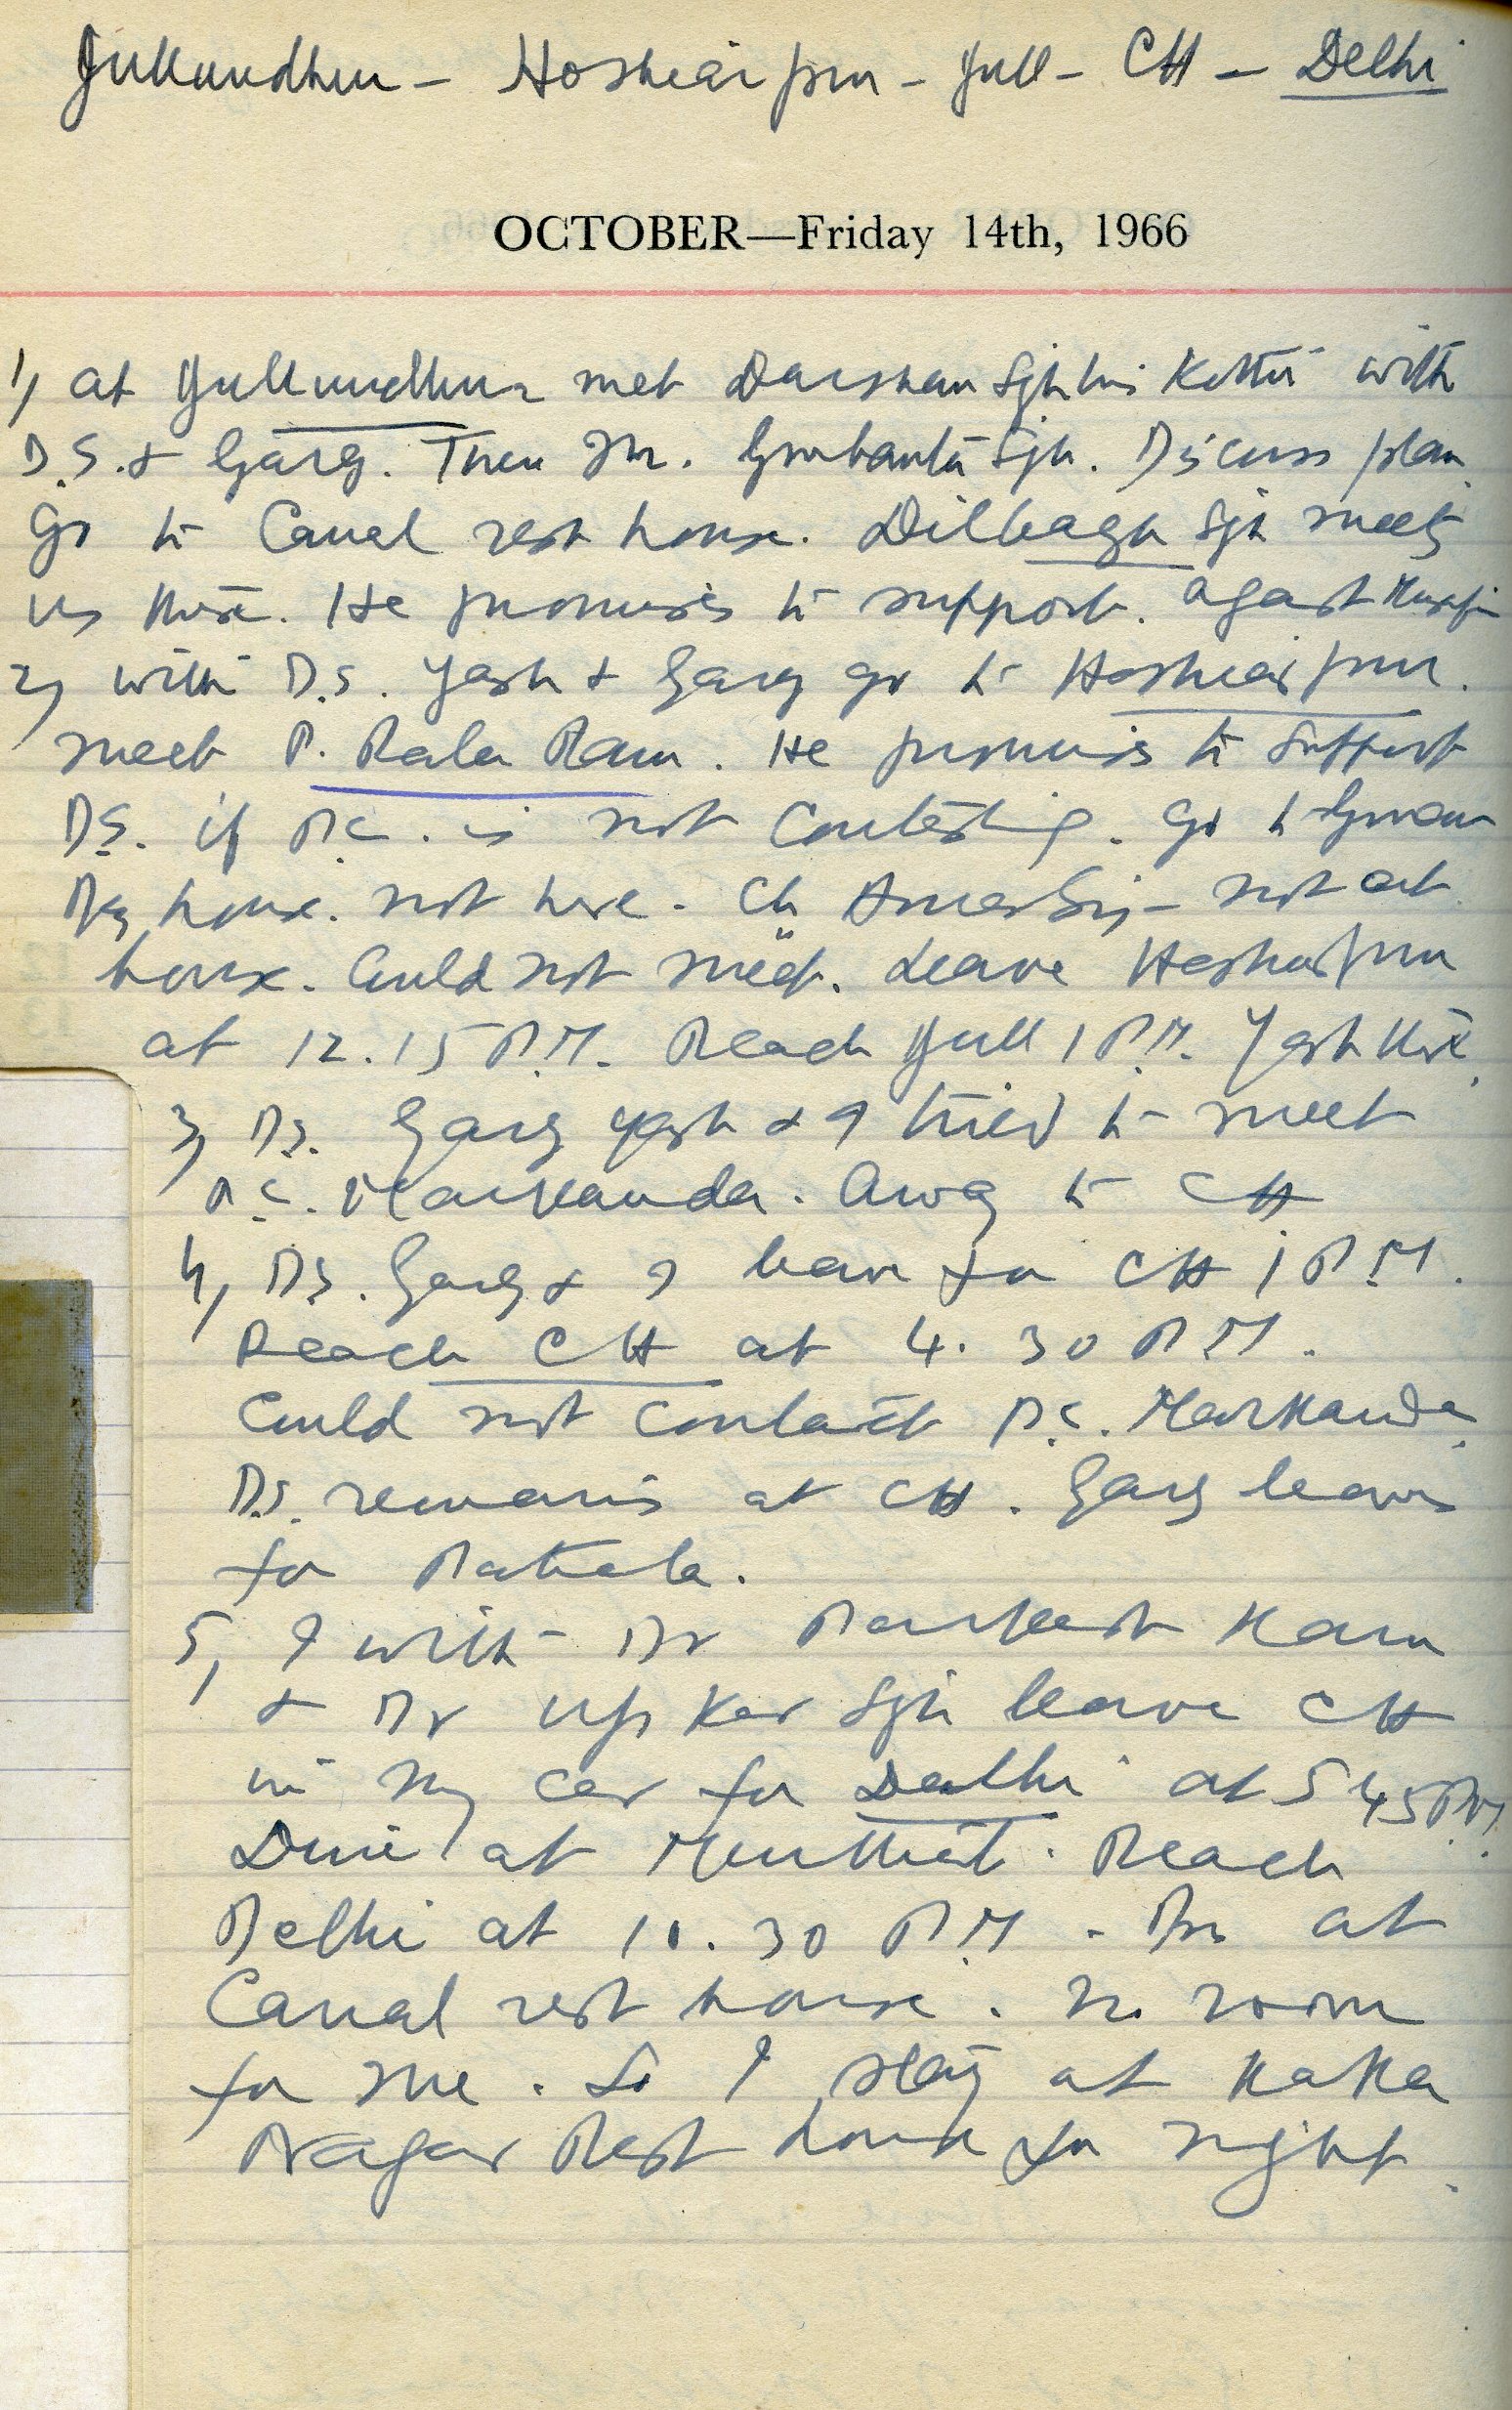 Jullundhur - Hoshiarpur - Jull - CH - Delhi
OCTOBER—Friday 14th, 1966
1) at Jullundhur met Darshan Sgh his Kothi with
D.S. & Garg. Then Mr. Gurbanta Sgh. Discuss plan.
Go to Canal rest house. Dilbagh Sgh meets
us there. He promises to support. agast
2) with D.S. Yash & Garg go to Hoshiarpur.
meet P. Rala Ram. He promises to support
DS. if is not contesting. Go to
house. not here. Ch Amar Sing - not at
house. Could not meet. Leave Hoshiarpur
at 12.15 P.M. Reach Jull 1 P.M. Yash there.
3) DS. Garg Yash & I tried to meet
Markanda. Away to CH
4) DS. Garg & I leave for CH 1 P.M.
Reach CH at 4.30 P.M.
Could not contact Markanda.
DS. remains at CH. Garg leaves
for Patiala.
5) I with Dr Ram
& Dr Upkar Sgh leave CH
in my car for Delhi at 5 45 P.M.
Dine at Murthal. Reach
Delhi at 10.30 P.M. - at
Canal rest house. No room
for me. So I stay at Kaka
Nagar Rest house for night.